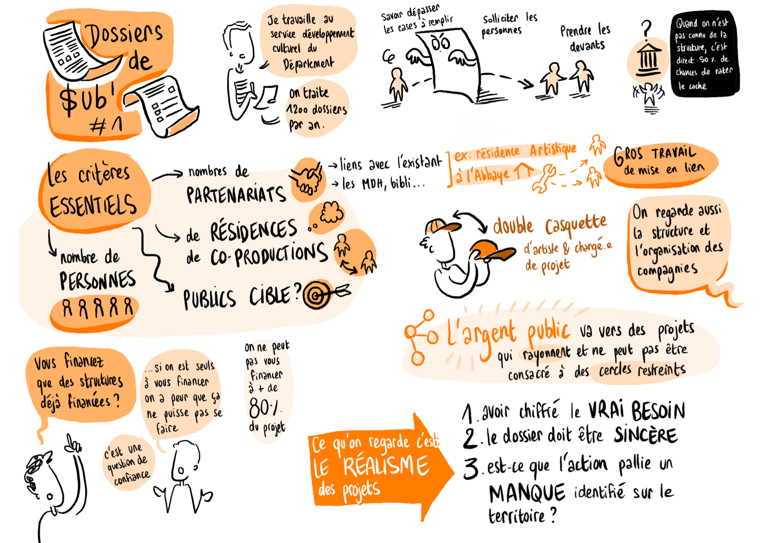 Dossiers
de
$ub'
#1
Je travaille au
service développement
culturel du
Département
On traite
1200 dossiers
par an.
Savoir dépasser
les cases à remplir
Solliciter les
personnes
Prendre les
devants
?
Quand on n'est
pas connu de la
structure, c'est
direct 50% de
chances de rater
le coche
Les critères
ESSENTIELS
nombres de
PARTENARIATS
liens avec l'existant
les MDH, bibli...
ex: résidence Artistique
à l'Abbaye
GROS TRAVAIL
de mise en lien
de RÉSIDENCES
de CO-PRODUCTIONS
nombre de
PERSONNES
PUBLICS CIBLE?
double casquette
d'artiste & chargé.e
de projet
On regarde aussi
la structure et
l'organisation des
compagnies
L'argent public va vers des projets
qui rayonnent et ne peut pas être
consacré à des cercles restreints
Vous financez
que des structures
déjà financées ?
...si on est seuls
à vous financer
on a peur que ça
ne puisse pas se
faire
c'est une
question de
confiance
on ne peut
pas vous
financer
à + de
80%
du projet
Ce qu'on regarde c'est
LE RÉALISME
des projets
1. avoir chiffré le VRAI BESOIN
2. le dossier doit être SINCÈRE
3. est-ce que l'action pallie un
MANQUE identifié sur le
territoire ?